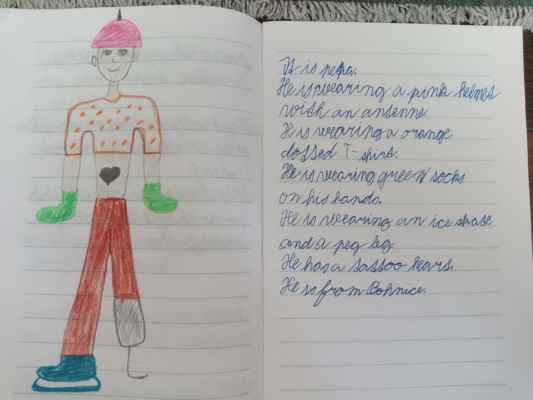 It is pepa.
He is wearing a pink helmet
with an antenne.
He is wearing a orange
dotted T-shirt.
He is wearing green socks
on his hands.
He is wearing an ice skate
and a peg leg.
He has a tattoo heart.
He is from Bohnice.